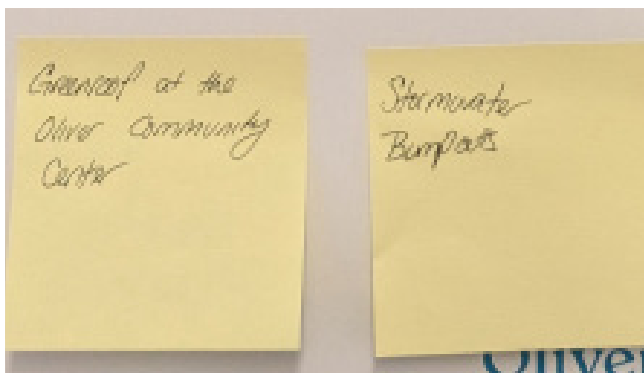 Greenroof at the
Oliver Community
Center
Stormwater
Bumpouts
Oliver